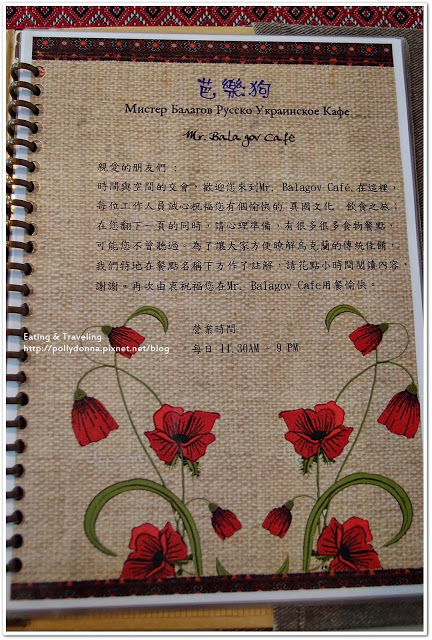 芭樂狗
Мистер Балагов Русско Украинское Кафе
Mr. Balagov Cafe
親愛的朋友們：
時間與空間的交會，歡迎您來到Mr. Balagov Café，在這裡，
每位工作人員誠心祝福您有個愉快的 異國文化 飲食之旅；
在您翻下一頁的同時，請心理準備，有很多很多食物餐點，
可能您不曾聽過。為了讓大家方便瞭解烏克蘭的傳統佳餚，
我們特地在餐點名稱下方作了註解，請花點小時間閱讀內容，
謝謝。再次由衷祝福您在Mr. Balagov Cafe用餐愉快。
營業時間
每日 11.30AM - 9 PM
Eating & Traveling
http://pollydonna.pixnet.net/blog